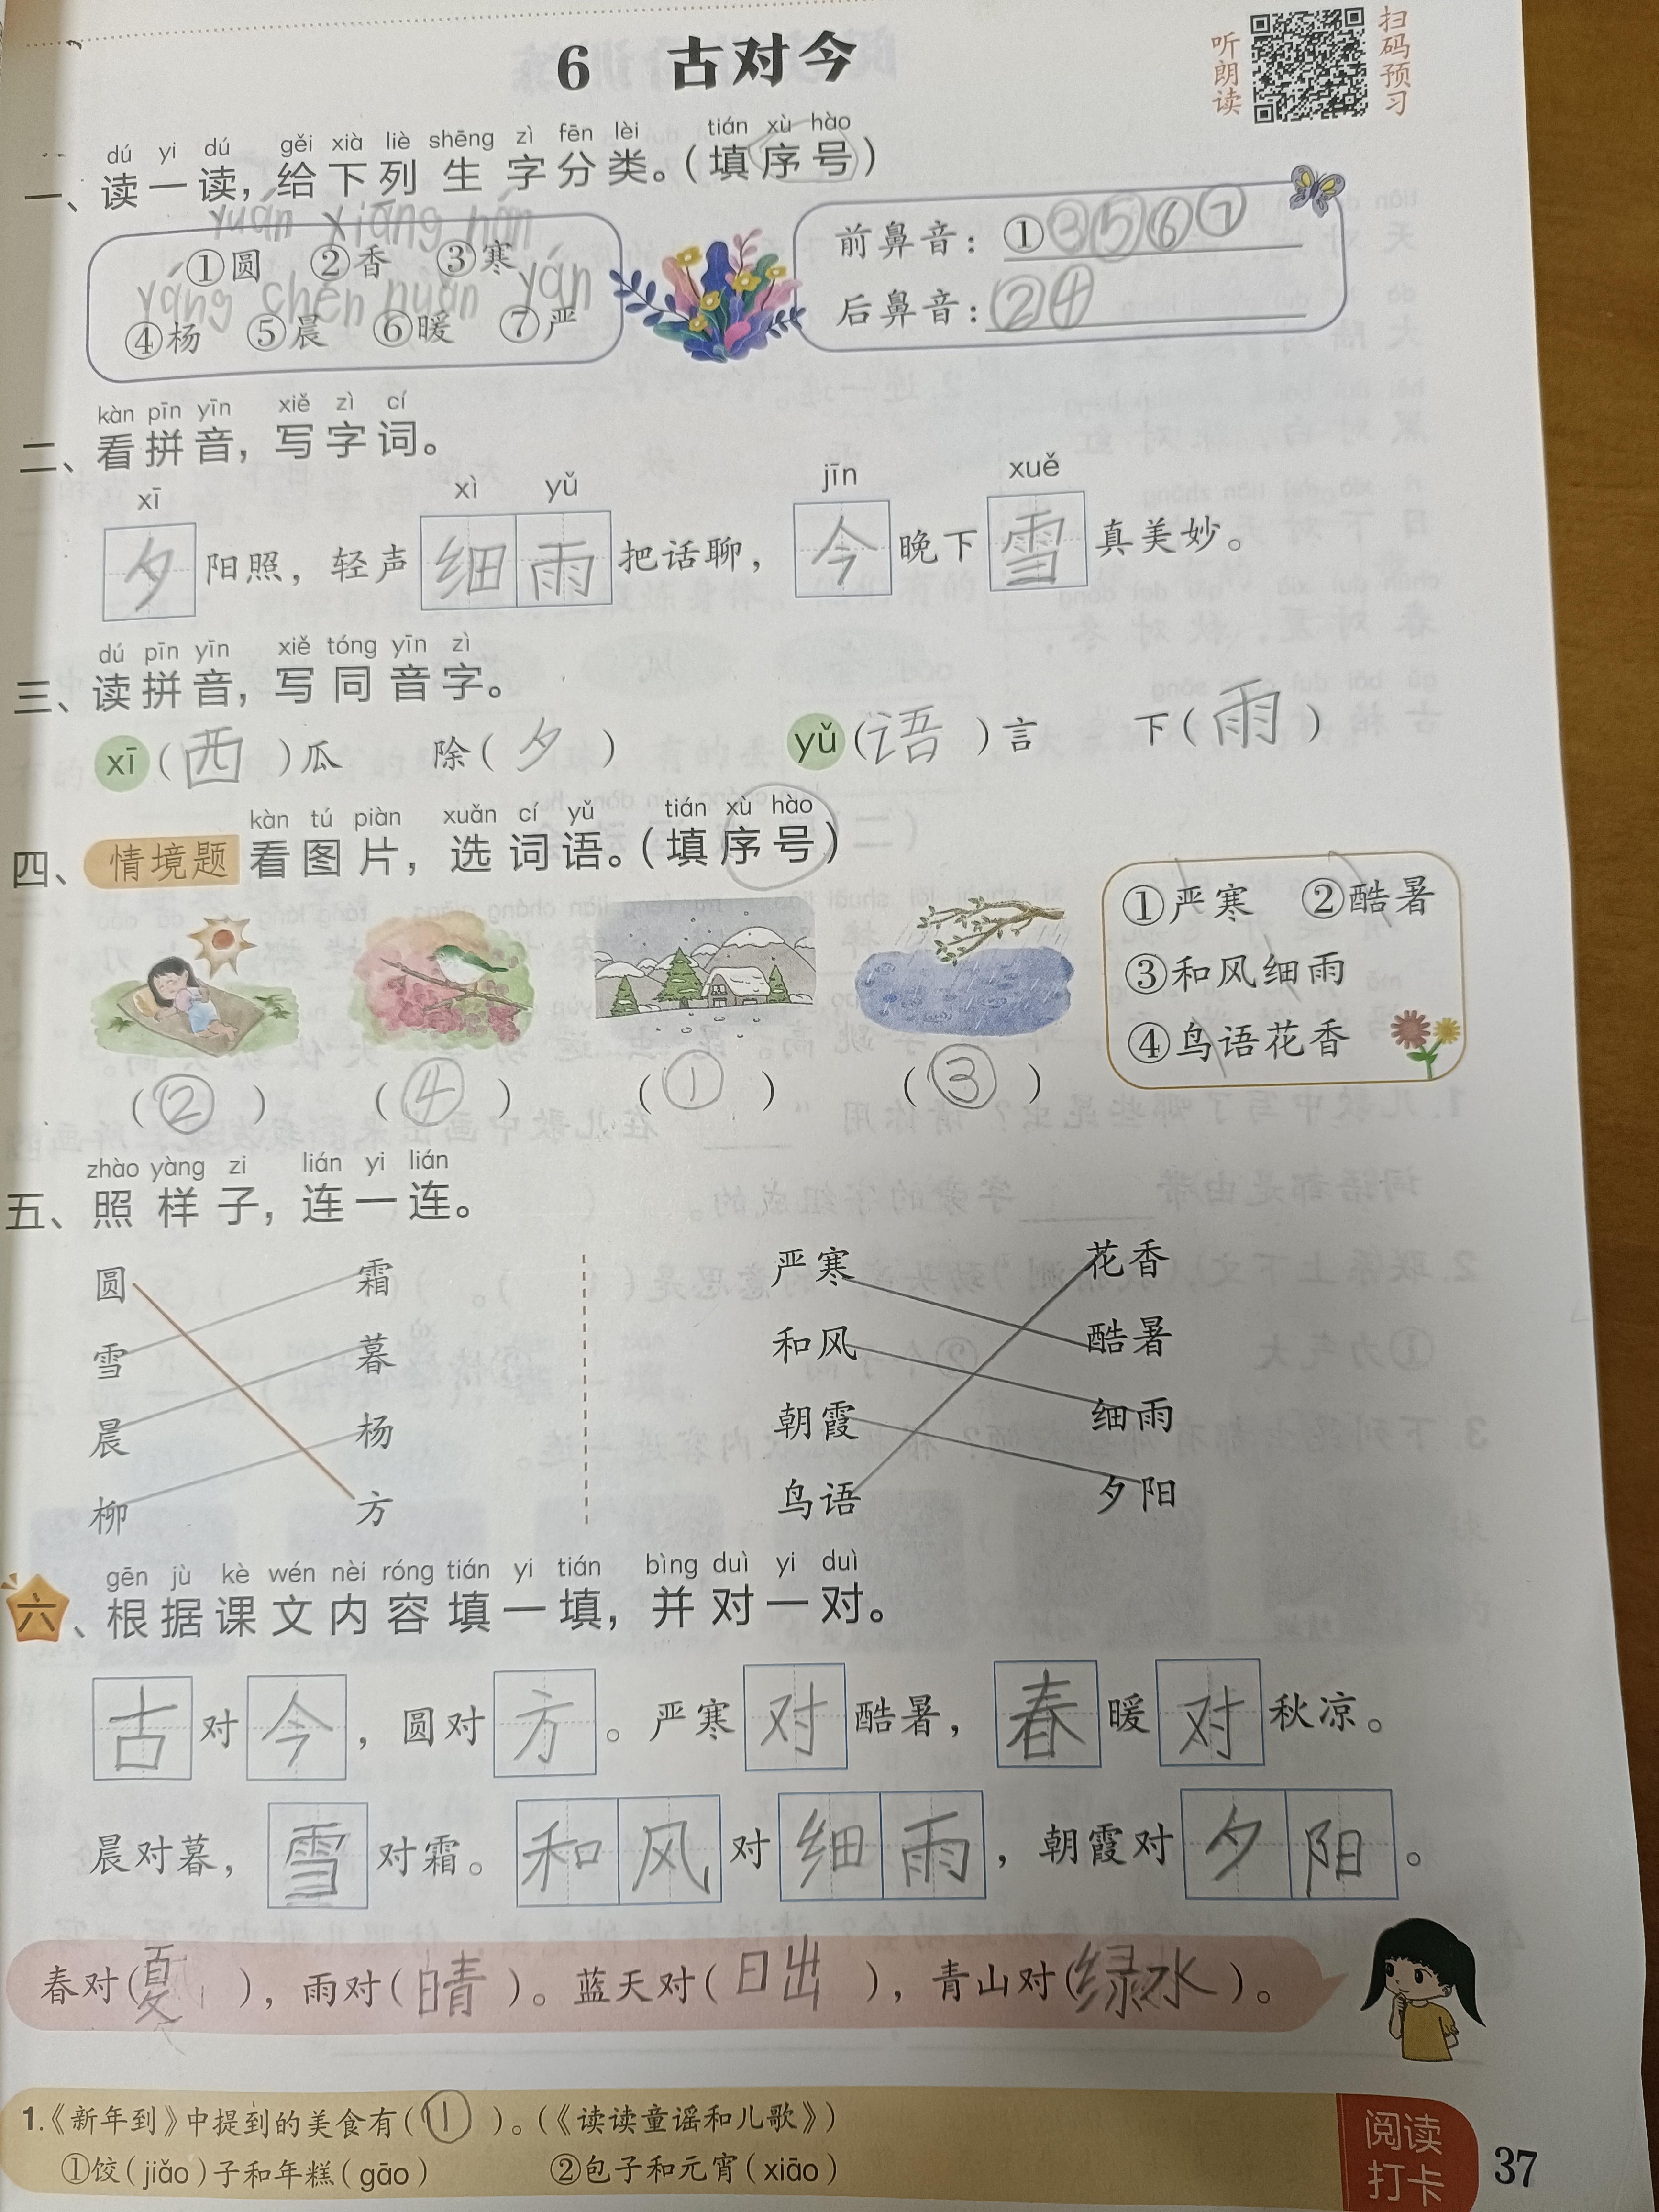 6 古对今
听朗读
扫码预习
dú yi dú gěi xià liè shēng zì fēn lèi tián xù hào
一、读一读，给下列生字分类。（填序号）
yuán xiāng hán
①圆 ②香 ③寒
yáng chén nuǎn yán
④杨 ⑤晨 ⑥暖 ⑦严
前鼻音：①③⑤⑥⑦
后鼻音：②④
kàn pīn yīn xiě zì cí
二、看拼音，写字词。
xī xì yǔ jīn xuě
夕阳照，轻声细雨把话聊，今晚下雪真美妙。
dú pīn yīn xiě tóng yīn zì
三、读拼音，写同音字。
xī（西）瓜 除（夕） yǔ（语）言 下（雨）
kàn tú piàn xuǎn cí yǔ tián xù hào
四、情境题 看图片，选词语。（填序号）
①严寒 ②酷暑
③和风细雨
④鸟语花香
（②） （④） （①） （③）
zhào yàng zi lián yi lián
五、照样子，连一连。
圆 霜 严寒 花香
雪 暮 和风 酷暑
晨 杨 朝霞 细雨
柳 方 鸟语 夕阳
gēn jù kè wén nèi róng tián yi tián bìng duì yi duì
六、根据课文内容填一填，并对一对。
古对今，圆对方。严寒对酷暑，春暖对秋凉。
晨对暮，雪对霜。和风对细雨，朝霞对夕阳。
春对（夏），雨对（晴）。蓝天对（日出），青山对（绿水）。
1.《新年到》中提到的美食有（①）。（《读读童谣和儿歌》）
①饺（jiǎo）子和年糕（gāo） ②包子和元宵（xiāo）
阅读
打卡
37